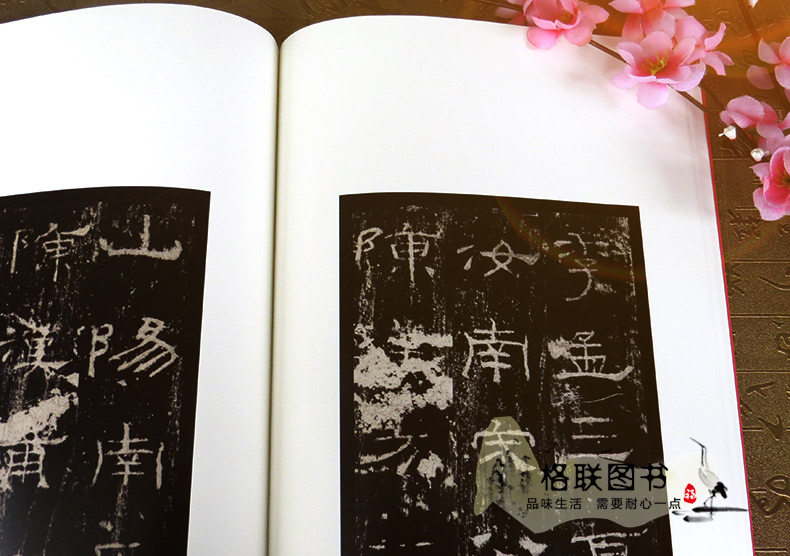 李孟三
汝南宋
陳
山陽南
陳漢甫
格联图书
品味生活 需要耐心一点